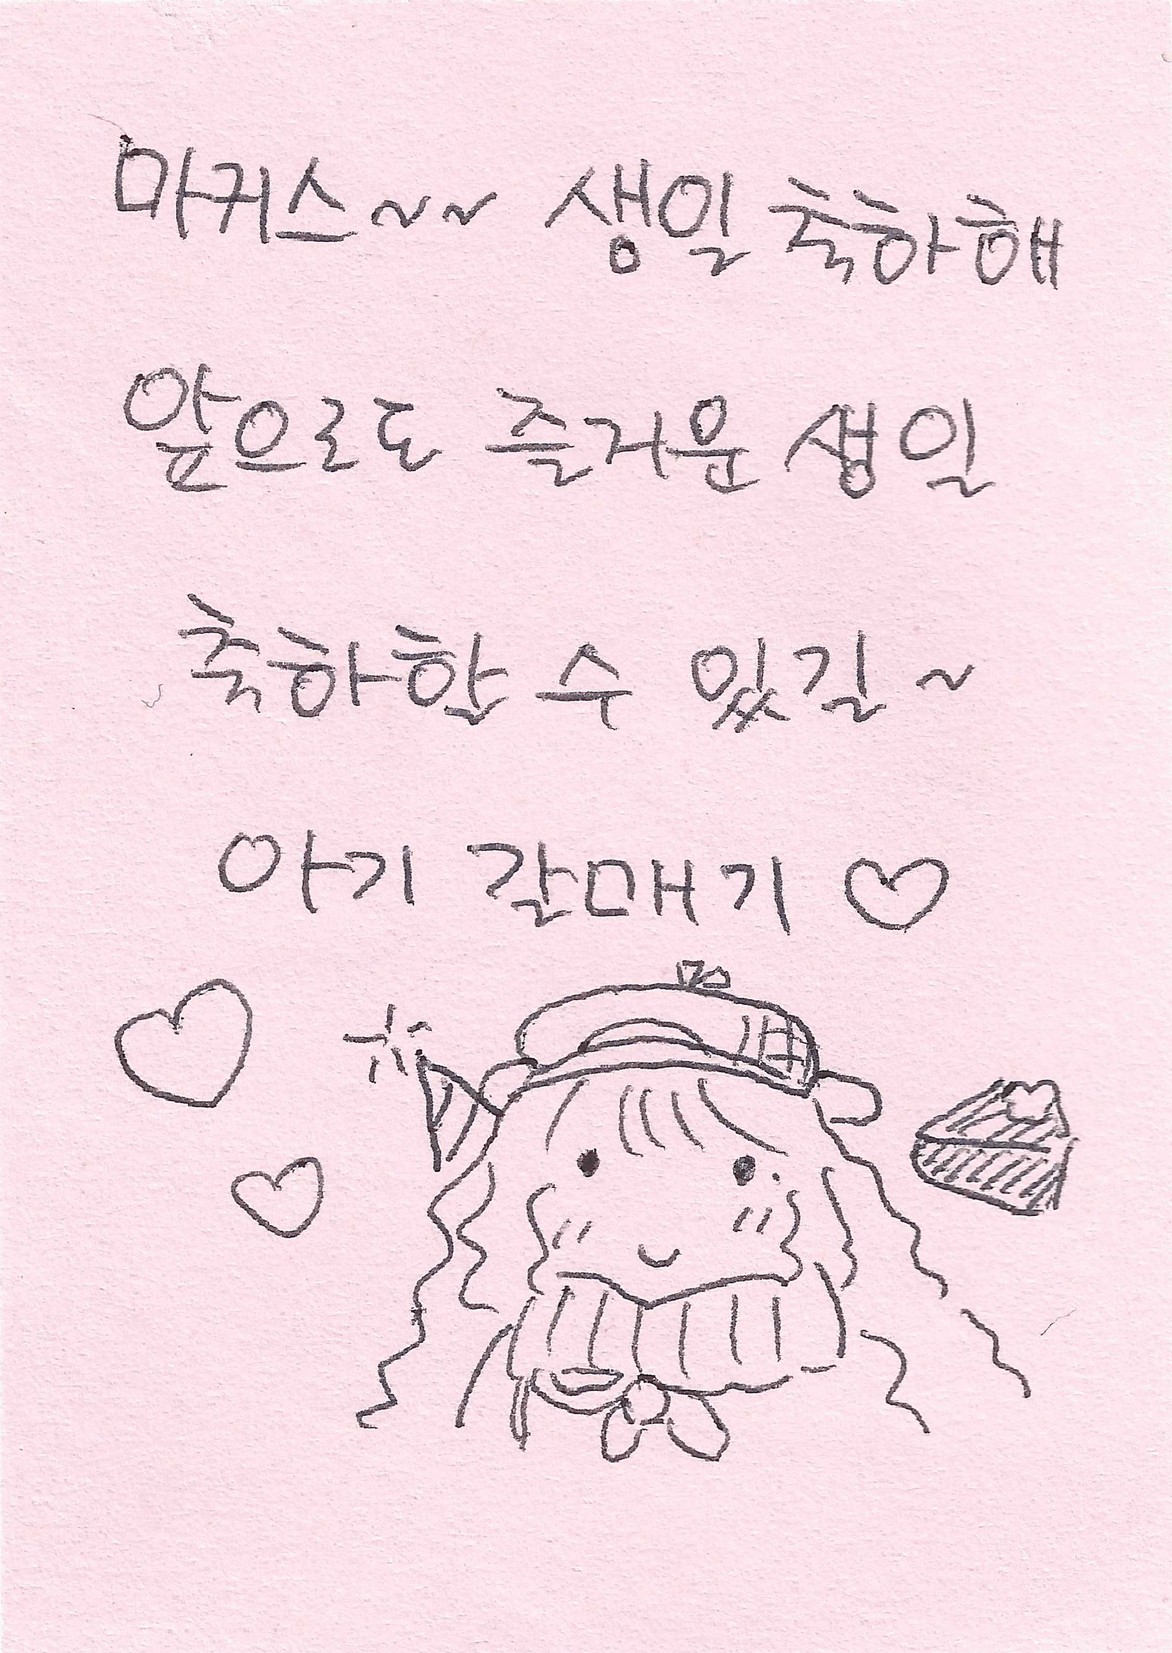 마귀스~~ 생일 축하해
앞으로도 즐거운 생일
축하할 수 있길~
아기 갈매기♡